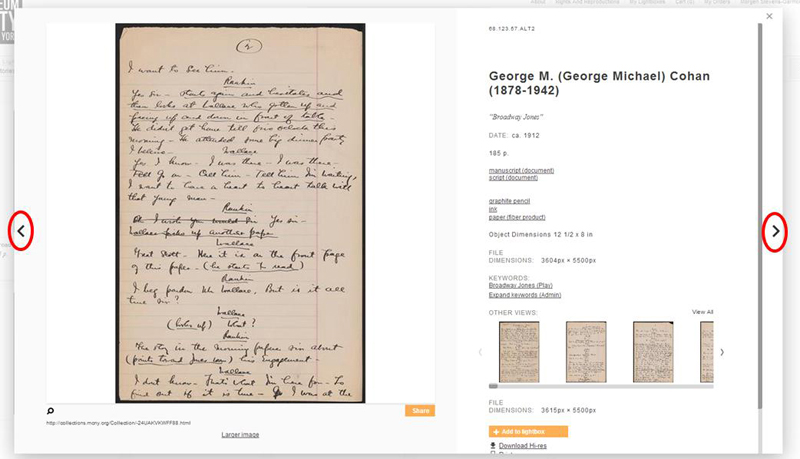 EUM
TY
YORK
About Rights And Reproductions My Lightboxes Cart (0) My Orders
×
2
I want to see him.
Rankin
Yes sir - starts again and hesitates and
then looks at Wallace who gotten up and
pacing up and down in front of table.
He didn't get home till five o'clock this
morning - He attended some big dinner party
I believe. Wallace
Yes I know - I was there - I was there -
Tell go on - Call him - Tell him I'm waiting,
I want to have a heart to heart talk with
that young man -
Rankin
Oh I wish you would sir Yes sir -
Wallace picks up another paper
Wallace
Great Scott - Here it is on the front page
of this paper - (he starts to read)
Rankin
I beg pardon Mr Wallace, But is it all
true sir?
Wallace
(looks up) What?
Rankin
The story in the morning papers sir about
(points toward Jones room) his engagement -
Wallace
I don't know - That's what I'm here for - To
find out if it is true - I was at the
Share
http://collections.mcny.org/Collection/-24UAKVKWFF98.html
Larger image
68.123.67.ALT2
George M. (George Michael) Cohan
(1878-1942)
"Broadway Jones"
DATE: ca. 1912
185 p.
manuscript (document)
script (document)
graphite pencil
ink
paper (fiber product)
Object Dimensions 12 1/2 x 8 in
FILE
DIMENSIONS: 3604px × 5500px
KEYWORDS:
Broadway Jones (Play)
Expand keywords (Admin)
OTHER VIEWS: View All
FILE
DIMENSIONS: 3615px × 5500px
+ Add to lightbox
Download Hi-res